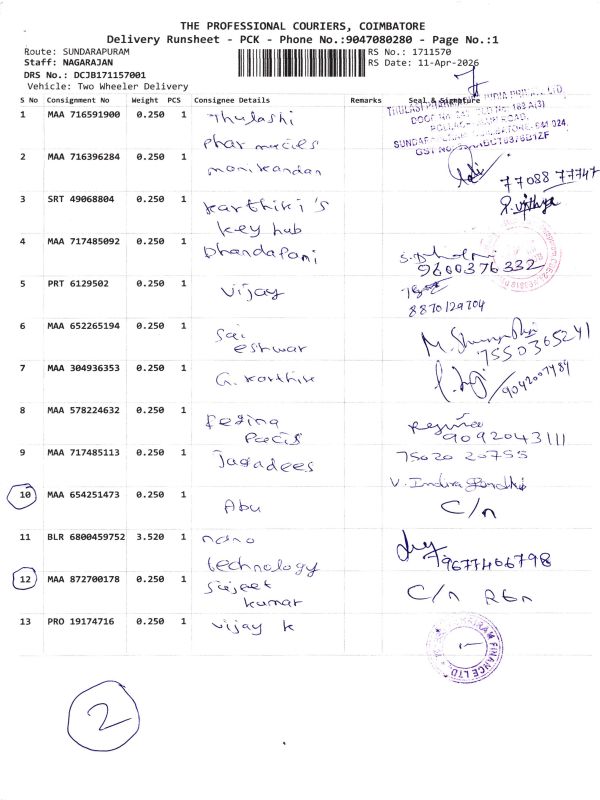 THE PROFESSIONAL COURIERS, COIMBATORE
Delivery Runsheet - PCK - Phone No.:9047080280 - Page No.:1
Route: SUNDARAPURAM RS No.: 1711570
Staff: NAGARAJAN RS Date: 11-Apr-2026
DRS No.: DCJB171157001
Vehicle: Two Wheeler Delivery
S No Consignment No Weight PCS Consignee Details Remarks Seal & Signature
1 MAA 716591900 0.250 1 Thulashi
pharmacies
2 MAA 716396284 0.250 1 manikandan
77088 77747
3 SRT 49068804 0.250 1 karthiki's
key hub
4 MAA 717485092 0.250 1 Dhandapani
9600376332
5 PRT 6129502 0.250 1 vijay
8870129704
6 MAA 652265194 0.250 1 Sai
eshwar
7550365241
7 MAA 304936353 0.250 1 G. Karthik
9042007484
8 MAA 578224632 0.250 1 Regina
Pacis
Regina
9092043111
9 MAA 717485113 0.250 1 Jagadees
75020 20755
V. Indira Gandhi
10 MAA 654251473 0.250 1 Abu C/n
11 BLR 6800459752 3.520 1 nano
technology
9677406798
12 MAA 872700178 0.250 1 Sujeet
kumar
C/n RTn
13 PRO 19174716 0.250 1 vijay k
FINANCE LTD.
2